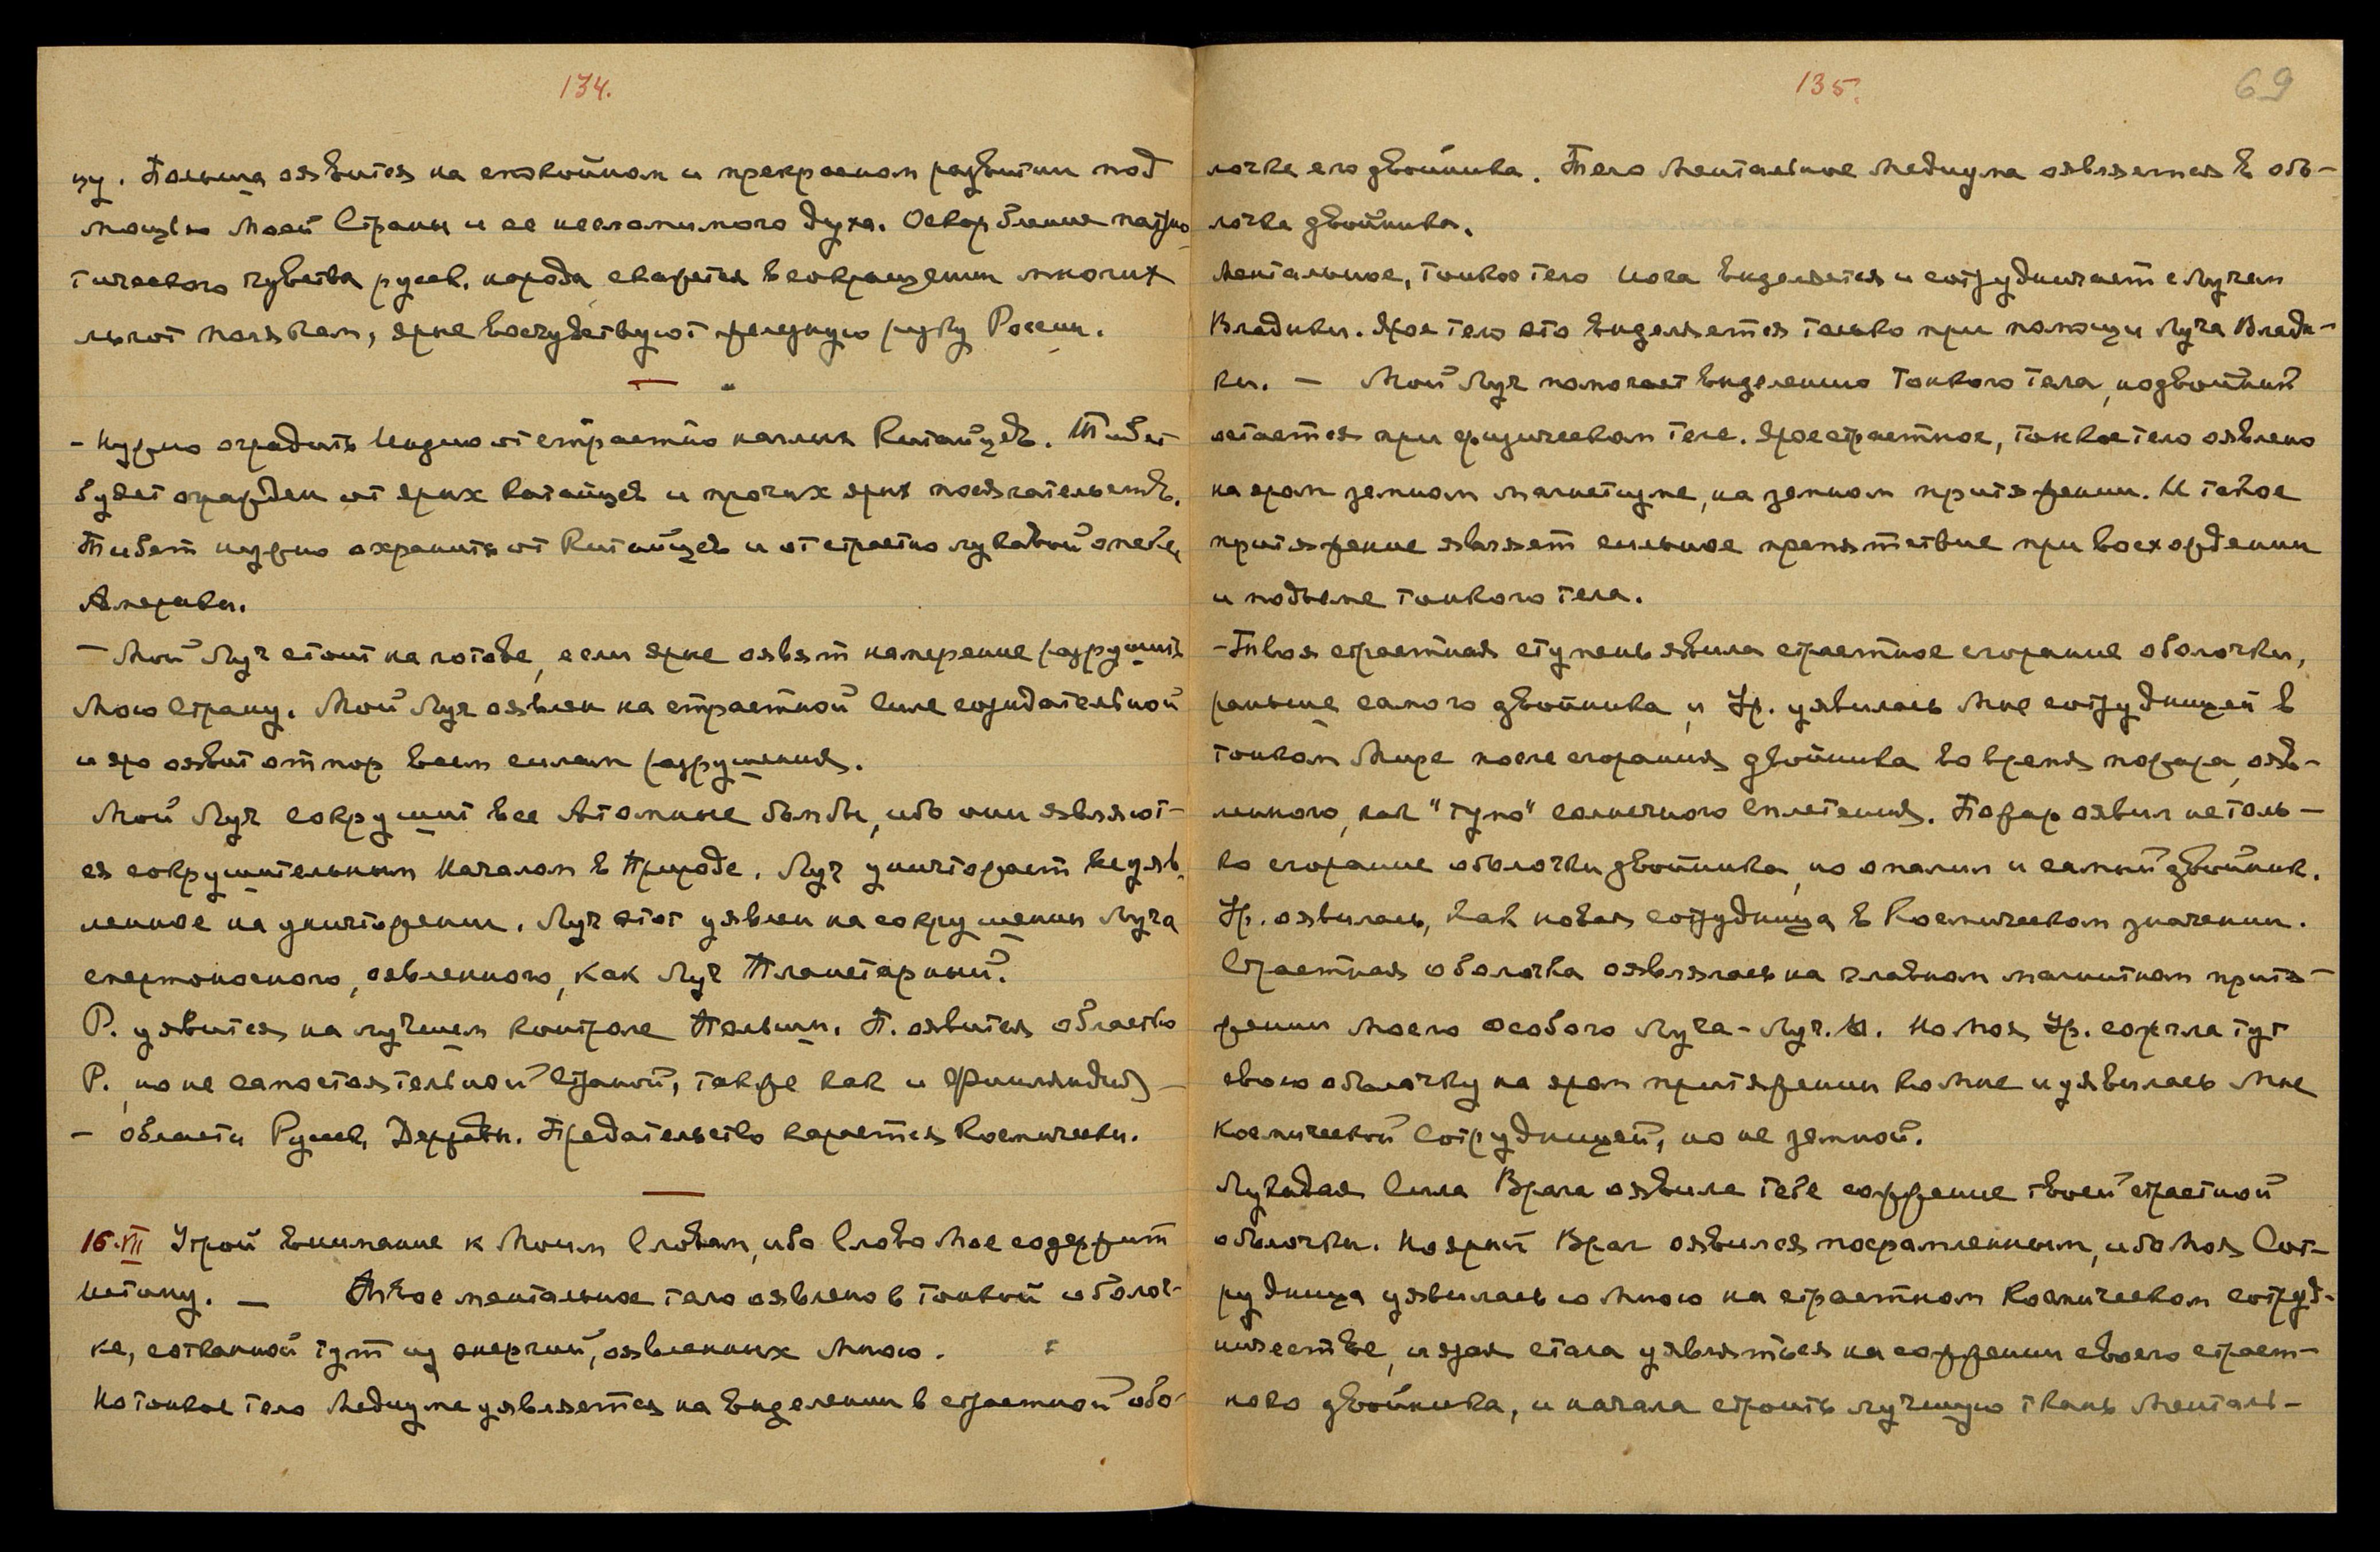 134.
ну. Польша оявится на спокойном и прекрасном развитии под
мощью Моей Страны и ее несломимого духа. Оскорбление патрио-
тического чувства русск. народа скажется в сокращении многих
льгот полякам, ярые восчувствуют железную руку России.
— Нужно оградить Индию от страстно наглых Китайцев. Тибет
будет огражден от ярых китайцев и прочих ярых посягательств.
Тибет нужно охранить от Китайцев и от страстно лукавой опеки
Америки.
— Мой Луч стоит на готове, если ярые оявят намерение разрушить
Мою Страну. Мой Луч оявлен на страстной Силе созидательной
и яро оявит отпор всем силам разрушения.
Мой Луч сокрушит все Атомные бомбы, ибо они являют-
ся сокрушительным Началом в Природе. Луч уничтожает все уяв-
ленное на уничтожении. Луч этот уявлен на сокрушении Луча
смертоносного, оявленного, как Луч Планетарный.
Р. уявится на лучшем контроле Польши. П. оявится областью
Р., но не самостоятельной Страной, также как и Финляндия —
— области Русск. Державы. Предательство карается Космически.
16.VII Утрой внимание к Моим Словам, ибо Слово Мое содержит
Истину. — Твое ментальное тело оявлено в тонкой оболоч-
ке, сотканной тут из энергий, оявленных Мною.
Но тонкое тело Медиума уявляется на выделении в страстной обо-
135. 69
лочке его двойника. Тело ментальное Медиума оявляется в обо-
лочке двойника.
Ментальное, тонкое тело Йога выделяется и сотрудничает с Лучем
Владыки. Ярое тело это выделяется только при помощи Луча Влады-
ки. — Мой Луч помогает выделению Тонкого тела, но двойник
остается при физическом теле. Ярое страстное, тонкое тело оявлено
на яром земном магнетизме, на земном притяжении. И такое
притяжение являет сильное препятствие при восхождении
и подъеме тонкого тела.
— Твоя страстная ступень явила страстное сгорание оболочки,
раньше самого двойника, и Ур. уявилась Мне сотрудницей в
тонком Мире после сгорания двойника во время пожара, ояв-
ленного, как "тумо" солнечного Сплетения. Пожар оявил не толь-
ко сгорание оболочки двойника, но опалил и самый двойник.
Ур. оявилась, как новая сотрудница в Космическом значении.
Страстная оболочка оявлялась на главном магнитном притя-
жении Моего Особого Луча — Луч. Но Моя Ур. сожгла тут
свою оболочку на яром притяжении ко Мне и уявилась Мне
Космической Сотрудницей, но не земной.
Лукавая Сила Врага оявила тебе сожжение твоей страстной
оболочки. Но ярый Враг оявился посрамленным, ибо Моя Сот-
рудница уявилась со Мною на страстном Космическом сотруд-
ничестве, и ярая стала уявляться на сожжении своего страст-
ного двойника, и начала строить лучшую ткань Менталь-